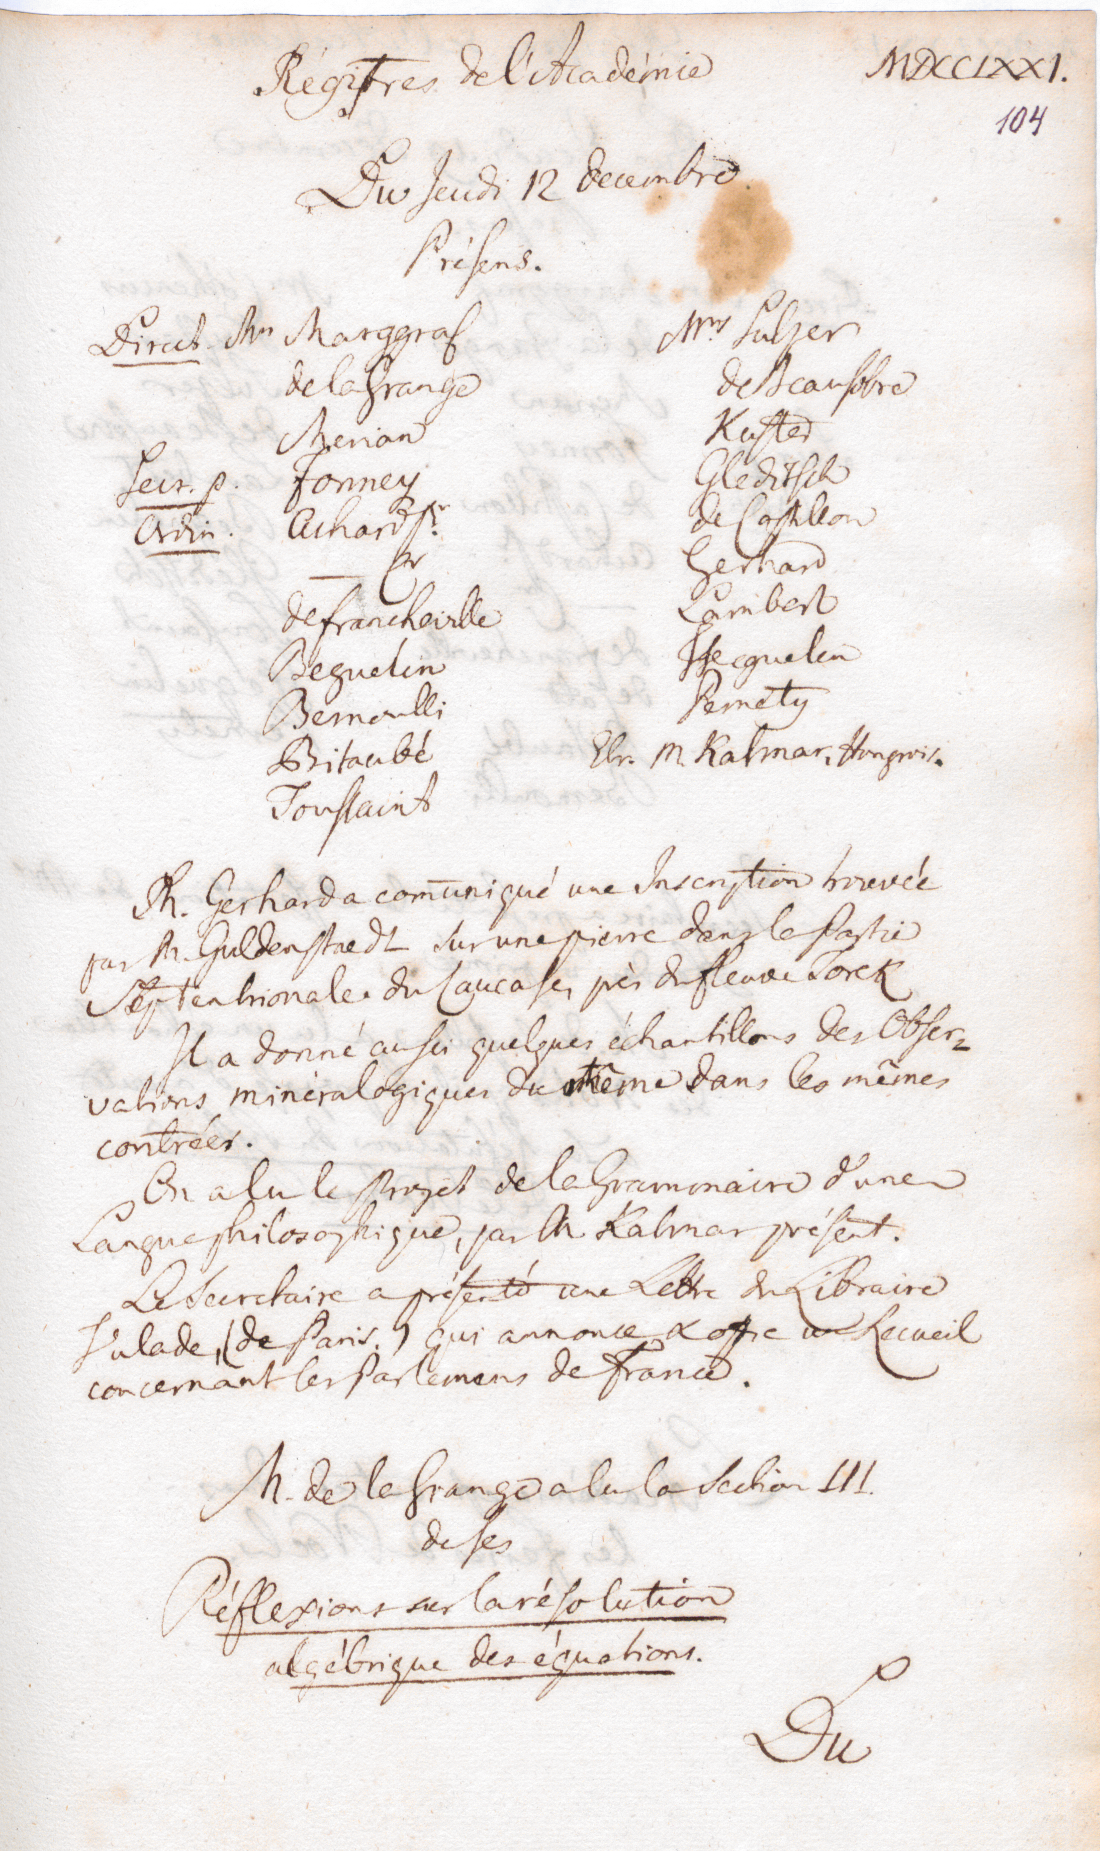 Régistres de l'Académie
MDCCLXXI.
104
Du Jeudi 12 decembre
Présens.
Direct. Mrs Marggraf
de la Grange
Merian
Secr. p. Formey
Ordin. Achard Sr.
— Jr
de francheville
Beguelin
Bernoulli
Bitaubé
Toussaint
Mrs Sulzer
de Beausobre
Kuster
Gleditsch
de Castillon
Gerhard
Lambert
Pernety
Etr. M. Kalmar, Hongrois.
M. Gerhard a com̄uniqué une Inscription trouvée
par M. Guldenstaedt sur une pierre dans la Partie
Septentrionale du Caucase, près du fleuve Torek
Il a donné aussi quelques échantillons des Obser=
vations minéralogiques du même dans les mêmes
contrées.
On a lu le Projet de la Grammaire d'une
Langue philosophique, par M. Kalmar présent.
Le Secretaire a présenté une Lettre du Libraire
Valade, (de Paris,) qui annonce & offre un Recueil
concernant les Parlemens de France.
M. de la Grange a lu la Section III.
de ses
Réflexions sur la résolution
algébrique des équations.
Du